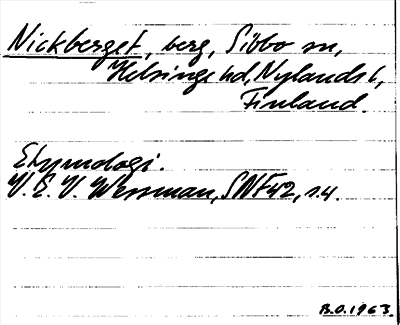 Nickberget, berg, Sibbo sn,
Helsinge hd, Nylands l,
Finland.
Etymologi.
V. E. V. Wessman, SNF 42, s. 4.
B.O. 1963.